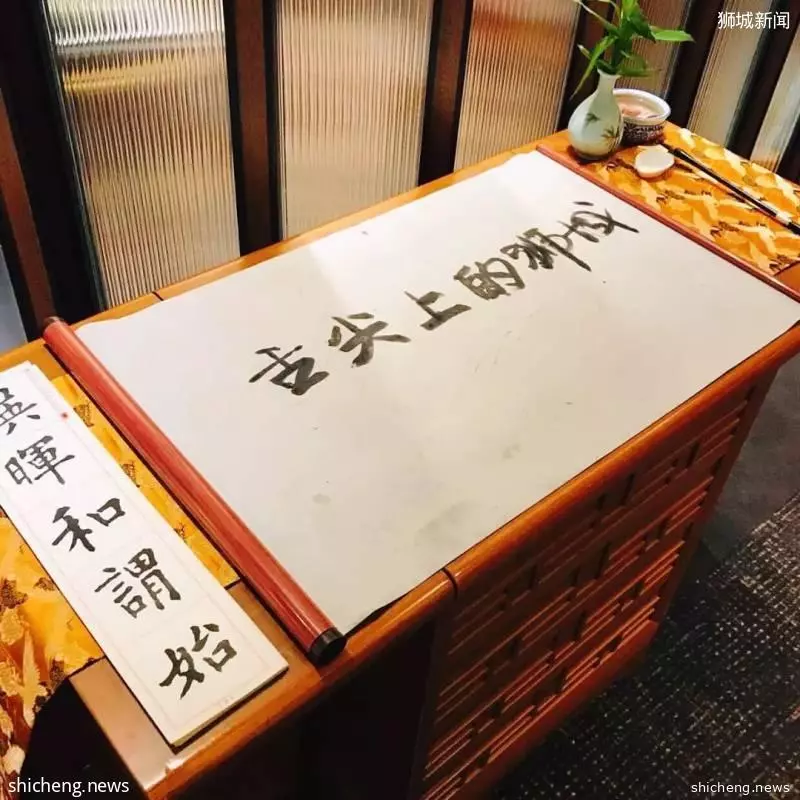 狮城新闻
舌尖上的狮城
英暉和謂始
shicheng.news
shicheng.news